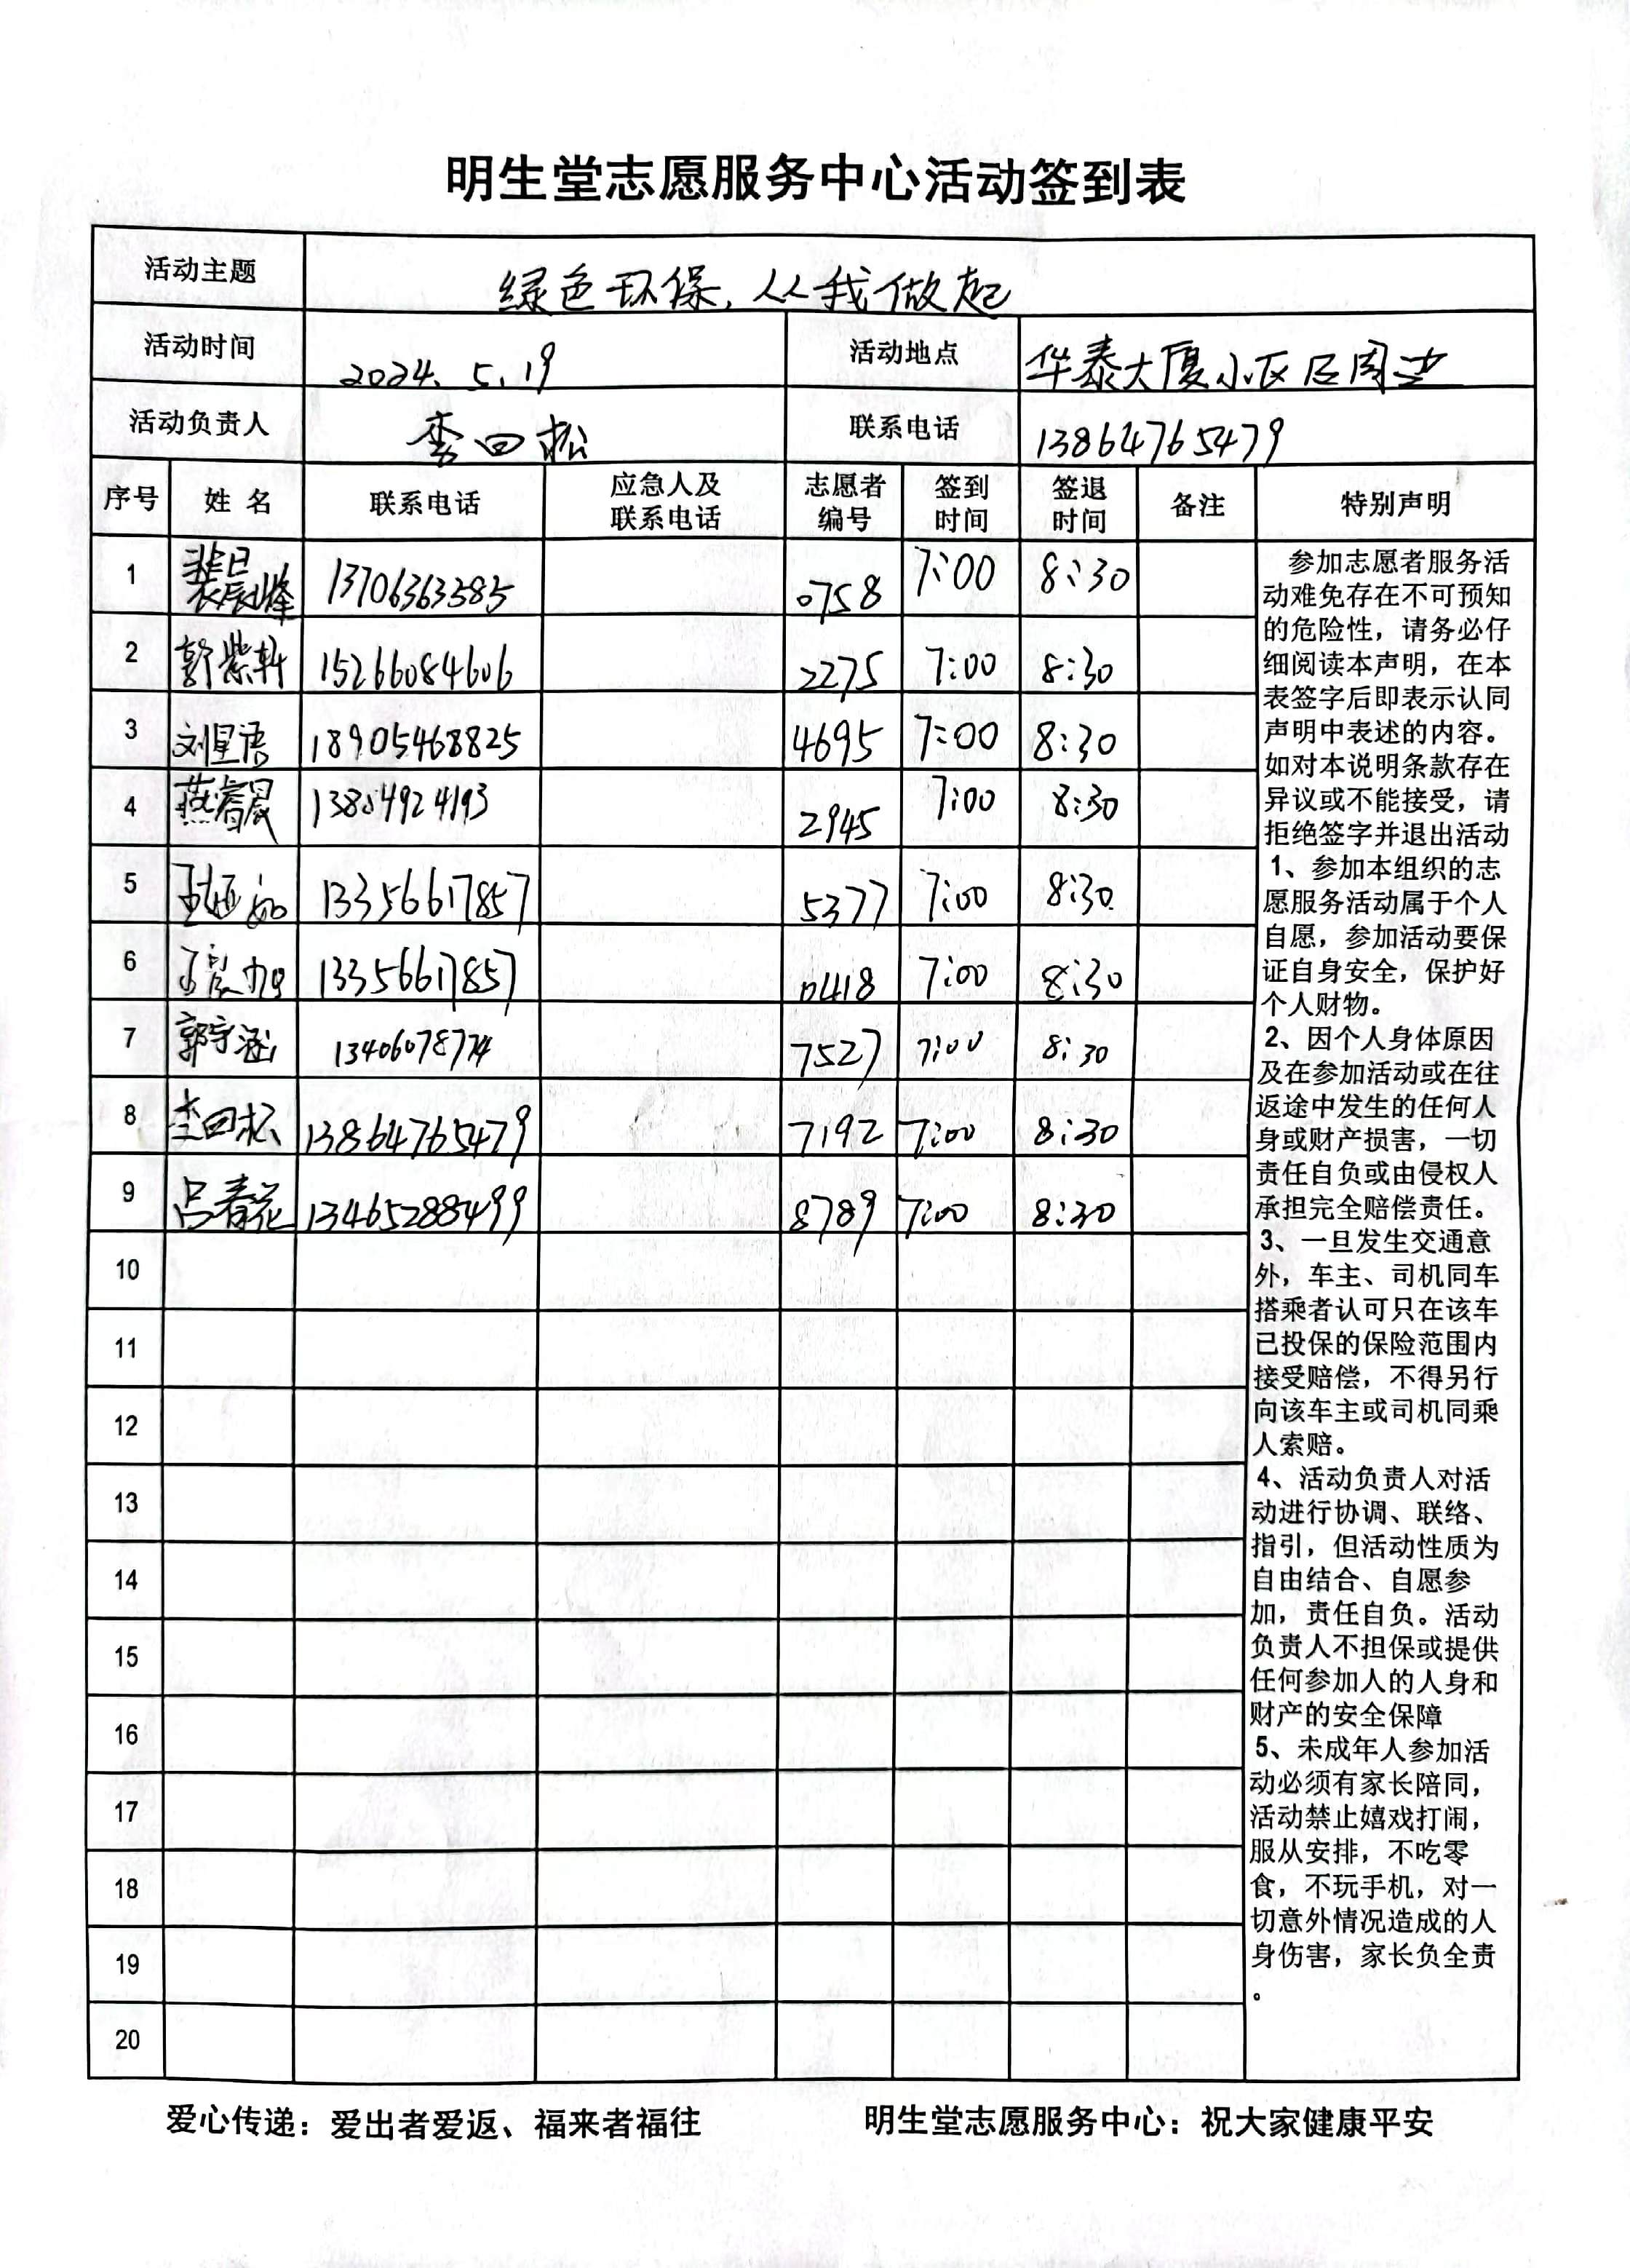 明生堂志愿服务中心活动签到表
活动主题 绿色环保，从我做起
活动时间 2024.5.19 活动地点 华泰大厦小区及周边
活动负责人 李回松 联系电话 13864765479
序号 姓名 联系电话 应急人及联系电话 志愿者编号 签到时间 签退时间 备注 特别声明
1 裴晨烽 13706363585 0758 7:00 8:30
2 郭紫轩 15266084606 2275 7:00 8:30
3 刘星语 18905468825 4695 7:00 8:30
4 燕睿晟 13854924193 2945 7:00 8:30
5 13356617857 5377 7:00 8:30
6 13356617857 0418 7:00 8:30
7 郭宇涵 13406078774 7527 7:00 8:30
8 李回松 13864765479 7192 7:00 8:30
9 吕春花 13465288499 8789 7:00 8:30
10
11
12
13
14
15
16
17
18
19
20
参加志愿者服务活
动难免存在不可预知
的危险性，请务必仔
细阅读本声明，在本
表签字后即表示认同
声明中表述的内容。
如对本说明条款存在
异议或不能接受，请
拒绝签字并退出活动
1、参加本组织的志
愿服务活动属于个人
自愿，参加活动要保
证自身安全，保护好
个人财物。
2、因个人身体原因
及在参加活动或在往
返途中发生的任何人
身或财产损害，一切
责任自负或由侵权人
承担完全赔偿责任。
3、一旦发生交通意
外，车主、司机同车
搭乘者认可只在该车
已投保的保险范围内
接受赔偿，不得另行
向该车主或司机同乘
人索赔。
4、活动负责人对活
动进行协调、联络、
指引，但活动性质为
自由结合、自愿参
加，责任自负。活动
负责人不担保或提供
任何参加人的人身和
财产的安全保障
5、未成年人参加活
动必须有家长陪同，
活动禁止嬉戏打闹，
服从安排，不吃零
食，不玩手机，对一
切意外情况造成的人
身伤害，家长负全责
。
爱心传递：爱出者爱返、福来者福往 明生堂志愿服务中心：祝大家健康平安